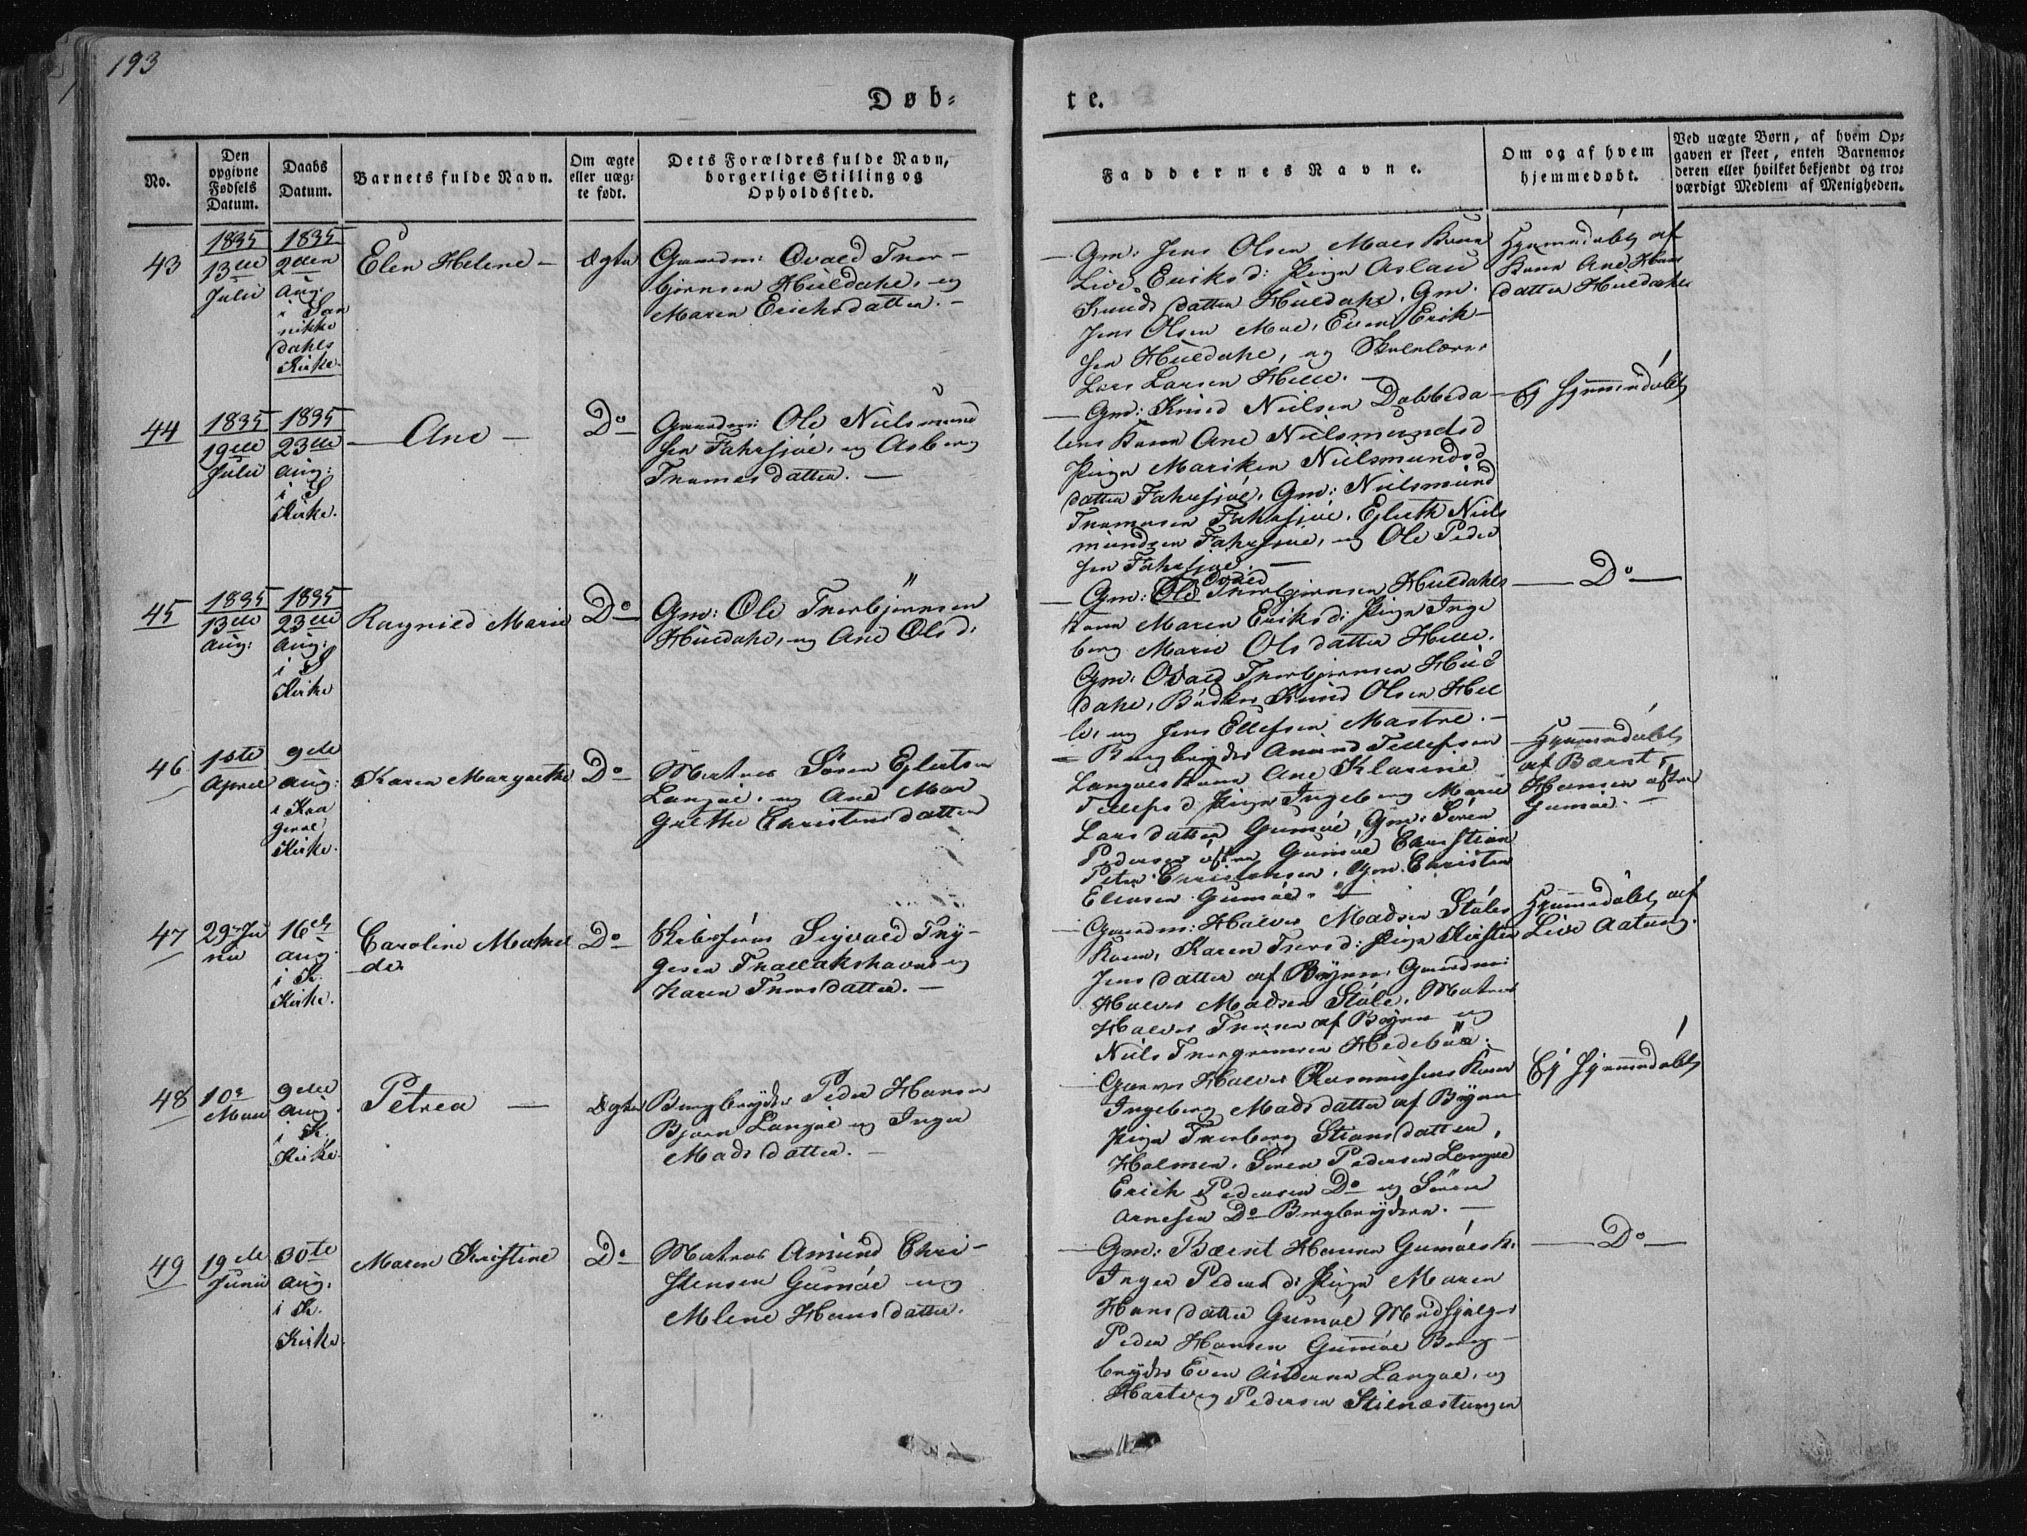 193
Døb=
te.
No.
Den opgivne Fødsels Datum.
Daabs Datum.
Barnets fulde Navn.
Om ægte eller uægte født.
Dets Forældres fulde Navn, borgerlige Stilling og Opholdssted.
Faddernes Navne.
Om og af hvem hjemmedøbt.
Ved uægte Børn, af hvem Opgaven er skeet, enten Barnemoderen eller hvilket bekjendt og troværdigt Medlem af Menigheden.
43
1835
13de
Julii
1835
2den
Aug:
i San
nikke
dahls
Kirke.
Elen Helene —
Ægte
Gaardm: Ovald Thor-
bjørnsen Huldahl, og
Maren Erichsdatter. —
— Gm: Jens Olsen Moes Kone
Live Eriksd: Pige Aslau
Knudsdatter Huldahl, Gm:
Jens Olsen Moe, Even Erik-
sen Huldahl, og Skolelærer
Lars Larsen Helle. —
Hjemmedøbt af
Kone Ane Hans
datter Huldahl
44
1835
19de
Julii
1835
23de
Aug:
i S
Kirke.
— Ane —
Do
Gaardm: Ole Nielsmund
sen Fahrsjøe, og Asberg
Thomesdatter. —
— Gm: Knud Nielsen Dobbeda
lens Kone Ane Nielsmundsd
Pige Mariken Nielsmundsd
datter Fahrsjøe, Gm: Nielsmund
Thomesen Fahrsjøe, Ejlerth Niels
mundsen Fahrsjøe, og Ole Peder
sen Fahrsjøe. —
— Ej hjemmedøbt
45
1835
13de
Aug:
1835
23de
Aug:
i S
Kirke
Ragnild Marie
Do
Gm: Ole Thorbjørnsen
Huldahl, og Ane Olsd:
Ovald
— Gm: Ole Thorbjørnsen Huldahls
Kone Maren Eriksd: Pige Inge
berg Marie Olsdatter Helle.
Gm: Ovald Thorbjørnsen Huld
dahl, Bødker Knud Olsen Hel
le, og Jens Ellefsen Mastre. —
— Do —
46
1ste
April
9de
Aug:
i Kra
gerøe
Kirke.
Karen Margrethe
Do
Matros Søren Ejlertsen
Langøe, og Ane Mar
grethe Christensdatter
— Bergbryder Amund Tellefsen
Langøes Kone Ane Klarine
Tellefsd Pige Ingeberg Marie
Larsdatter Gumøe, Gm: Søren
Pedersen østre Gumøe Christian
Peter Christensen, Gm: Christen
Eliasen Gumøe. —
Hjemmedøbt
af Bærnt
Hansen østre
Gumøe. —
47
29 Ju
nii
16de
Aug.
i K.
Kirke.
Caroline Mathil
de.
Do
Skibstømm Sigvald Thy-
gesen Thallakshavn og
Karen Thorsdatter. —
— Gaardm: Halvor Madsen Støles
Kone, Karen Thorsd: Pige Kirsten
Jensdatter af Bøyen, Gaardm:
Halvor Madsen Støle, Matros
Halvor Thorsen af Bøyen og
Niels Thorgrimsen Hedebøe.
Hjemmedøbt af
Live Aatung.
48
10de
Mai
9de
Aug.
i K.
Kirke.
Petrea —
Ægte
Bergbryder Peder Hansen
Bjørn Langøe og Inger
Madsdatter. —
— Garver Halvor Rasmussens Kone
Ingeberg Madsdatter af Bøyen
Pige Thorberg Stiansdatter,
Holmen, Søren Pedersen Langøe
Erich Pedersen Do og Søren
Arnesen Do Bergbrydere. —
Ej hjemmedøbt
49
19de
Junii
30te
Aug.
i K.
Kirke.
Maren Kristine
Do
Matros Amund Chri-
stensen Gumøe og
Mlene Hansdatter.
— Gm: Bærnt Hansen Gumøes K:
Inger Pedersd: Pige Maren
Hansdatter Gumøe
Peder Hansen Gumøe Berg-
bryder Even Andersen Langøe, og
Hartvig Pedersen Stilnæstangen
— Do —